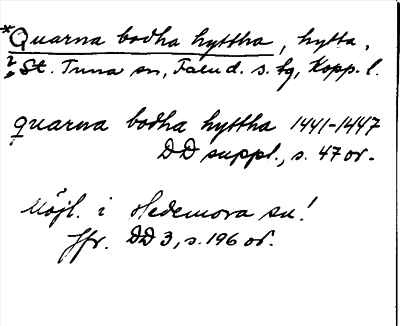 *Quarna bodha hyttha, hytta,
i St. Tuna sn, Falu d. s. fg, Kopp. l.
quarna bodha hyttha 1441-1447
DD suppl., s. 47 or.
Möjl. i Hedemora sn!
Jfr. DD 3, s. 196 or.